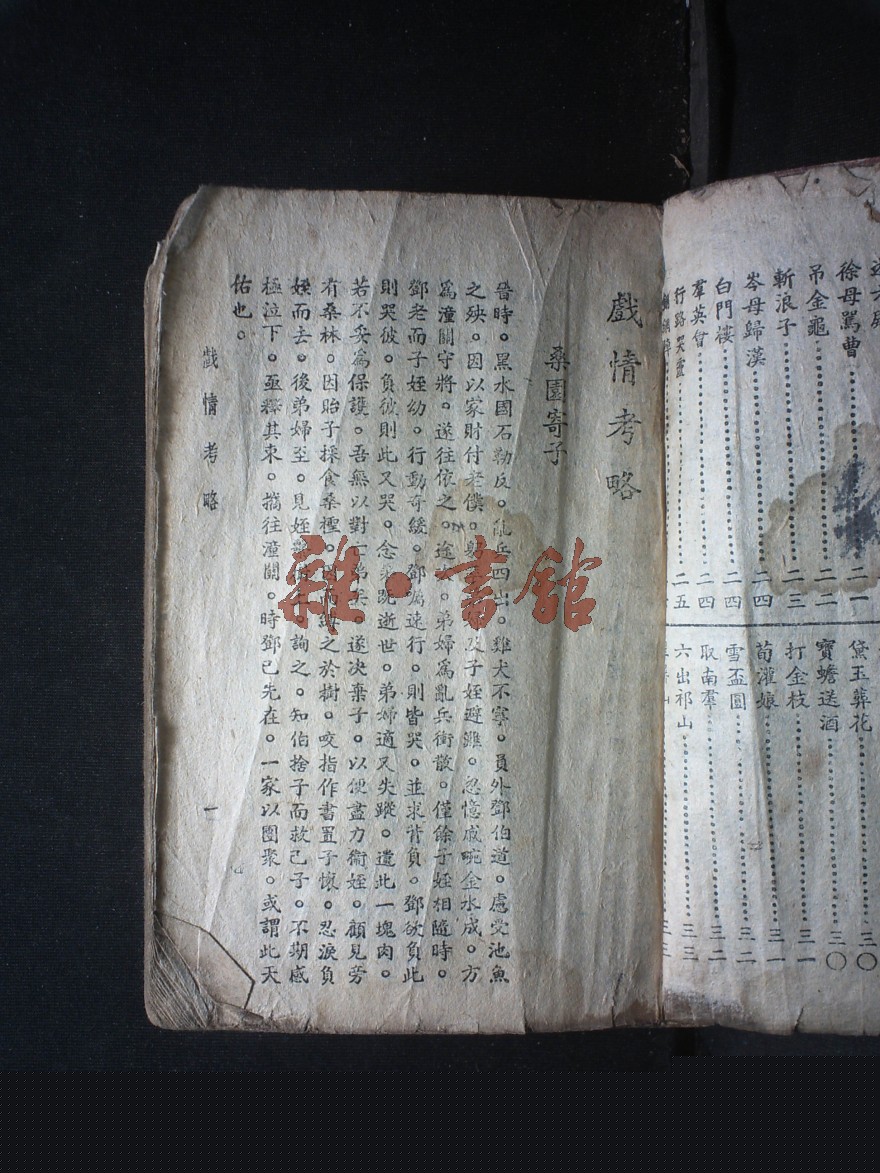 徐母罵曹 二一
吊金龜 二二
斬浪子 二三
岑母歸漢 二四
白門樓 二四
羣英會 二四
行路哭靈 二五
黛玉葬花 三〇
寶蟾送酒 三〇
打金枝 三一
荀灌娘 三二
雪盃圓 三二
取南羣 三二
六出祁山 三三
戲情考略
桑園寄子
晉時。黑水國石勒反。亂兵四出。雞犬不寧。員外鄧伯道。慮受池魚
之殃。因以家財付老僕。及子姪避難。忽憶戚晼金水成。方
爲潼關守將。遂往依之。途 弟婦爲亂兵衝散。僅餘子姪相隨時。
鄧老而子姪幼。行動奇緩。鄧囑速行。則皆哭。並求背負。鄧欲負此
則哭彼。負彼則此又哭。念弟既逝世。弟婦適又失蹤。遺此一塊肉。
若不妥爲保護。吾無以對亡弟矣。遂决棄子。以便盡力衞姪。顧見旁
有桑林。因貽子採食桑椹。之於樹。咬指作書置子懷。忍淚負
姪而去。後弟婦至。見姪 詢之。知伯捨子而救己子。不期感
極泣下。亟釋其束。攜往潼關。時鄧已先在。一家以團聚。或謂此天
佑也。
戲情考略
一
雜·書館